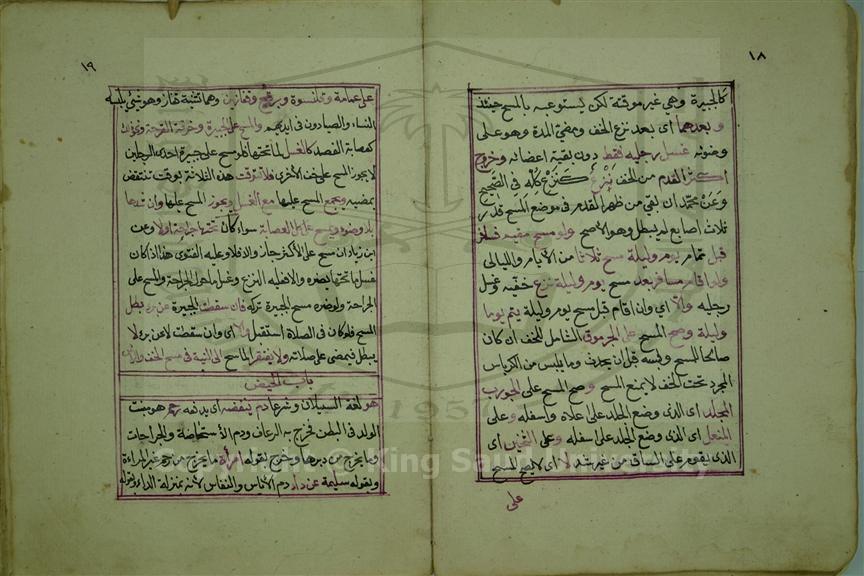 ١٨
كالجبيرة وهي غير موقتة لكن يستوعبه بالمسح حينئذ
وبعدهما اى بعد نزع الخف ومضى المدة وهو على
وضوئه غسل رجليه فقط دون بقية اعضائه وخروج
اكثر القدم من الخف نزع كنزع كله فى الصحيح
وعن محمد ان بقى من ظهر القدم فى موضع المسح قدر
ثلاث اصابع لم يبطل وهو الاصح ولو مسح مقيم فسافر
قبل تمام يوم وليلة مسح ثلاثا من الايام والليالى
ولو اقام مسافر بعد مسح يوم وليلة نزع خفيه وغسل
رجليه والا اى وان اقام قبل مسح يوم وليلة يتم يوما
وليلة وصح المسح على الجرموق الشامل للخف ان كان
صالحا للمسح ولبسه قبل ان يحدث وما يلبس من الكرباس
المجرد تحت الخف لا يمنع المسح وصح المسح على الجورب
المجلد اى الذى وضع الجلد على اعلاه واسفله وعلى
المنعل اى الذى وضع الجلد على اسفله وعلى الثخين اى
الذى يقوم على الساق من غير شد لا اى لا يصح المسح
على
١٩
على عمامة وقلنسوة وبرقع وقفازين وهما تثنية قفاز وهو شئ يلبسه
النساء والصيادون فى ايديهم والمسح على الجبيرة وخرقة القرحة ونحو ذلك
كعصابة الفصد كالغسل لما تحتها فلو مسح على جبيرة احدى الرجلين
لا يجوز المسح على خف الاخرى فلا توقت هذه الثلاثة بوقت تنتقض
بمضيه ويجمع المسح عليها مع الغسل ويجوز المسح عليها وان شدها
بلا وضوء ويمسح على كل العصابة سواء كان تحتها جراحة اولا وعن
ابن زياد ان مسح على الاكثر جاز والا فلا وعليه الفتوى هذا اذا كان
غسل ما تحتها يضره والا فعليه النزع وغسل ما حول الجراحة والمسح على
الجراحة ولو ضره مسح الجبيرة تركه فان سقطت الجبيرة عن برء بطل
المسح فلو كان فى الصلاة استقبل والا اى وان سقطت لا عن برء لا
يبطل فيمضى على صلاته ولا يفتقر الماسح الى النية فى مسح الخف والرأس
باب الحيض
هو لغة السيلان وشرعا دم ينفضه اى يدفعه رحم هو منبت
الولد فى البطن فخرج به الرعاف ودم الاستحاضة والجراحات
وما يخرج من دبرها وخرج لقوله امرأة ما يخرج من رحم غير المراءة
وبقوله سليمة عن داء دم الاياس والنفاس لانه بمنزلة الداء وبقوله
1957
King Saud University